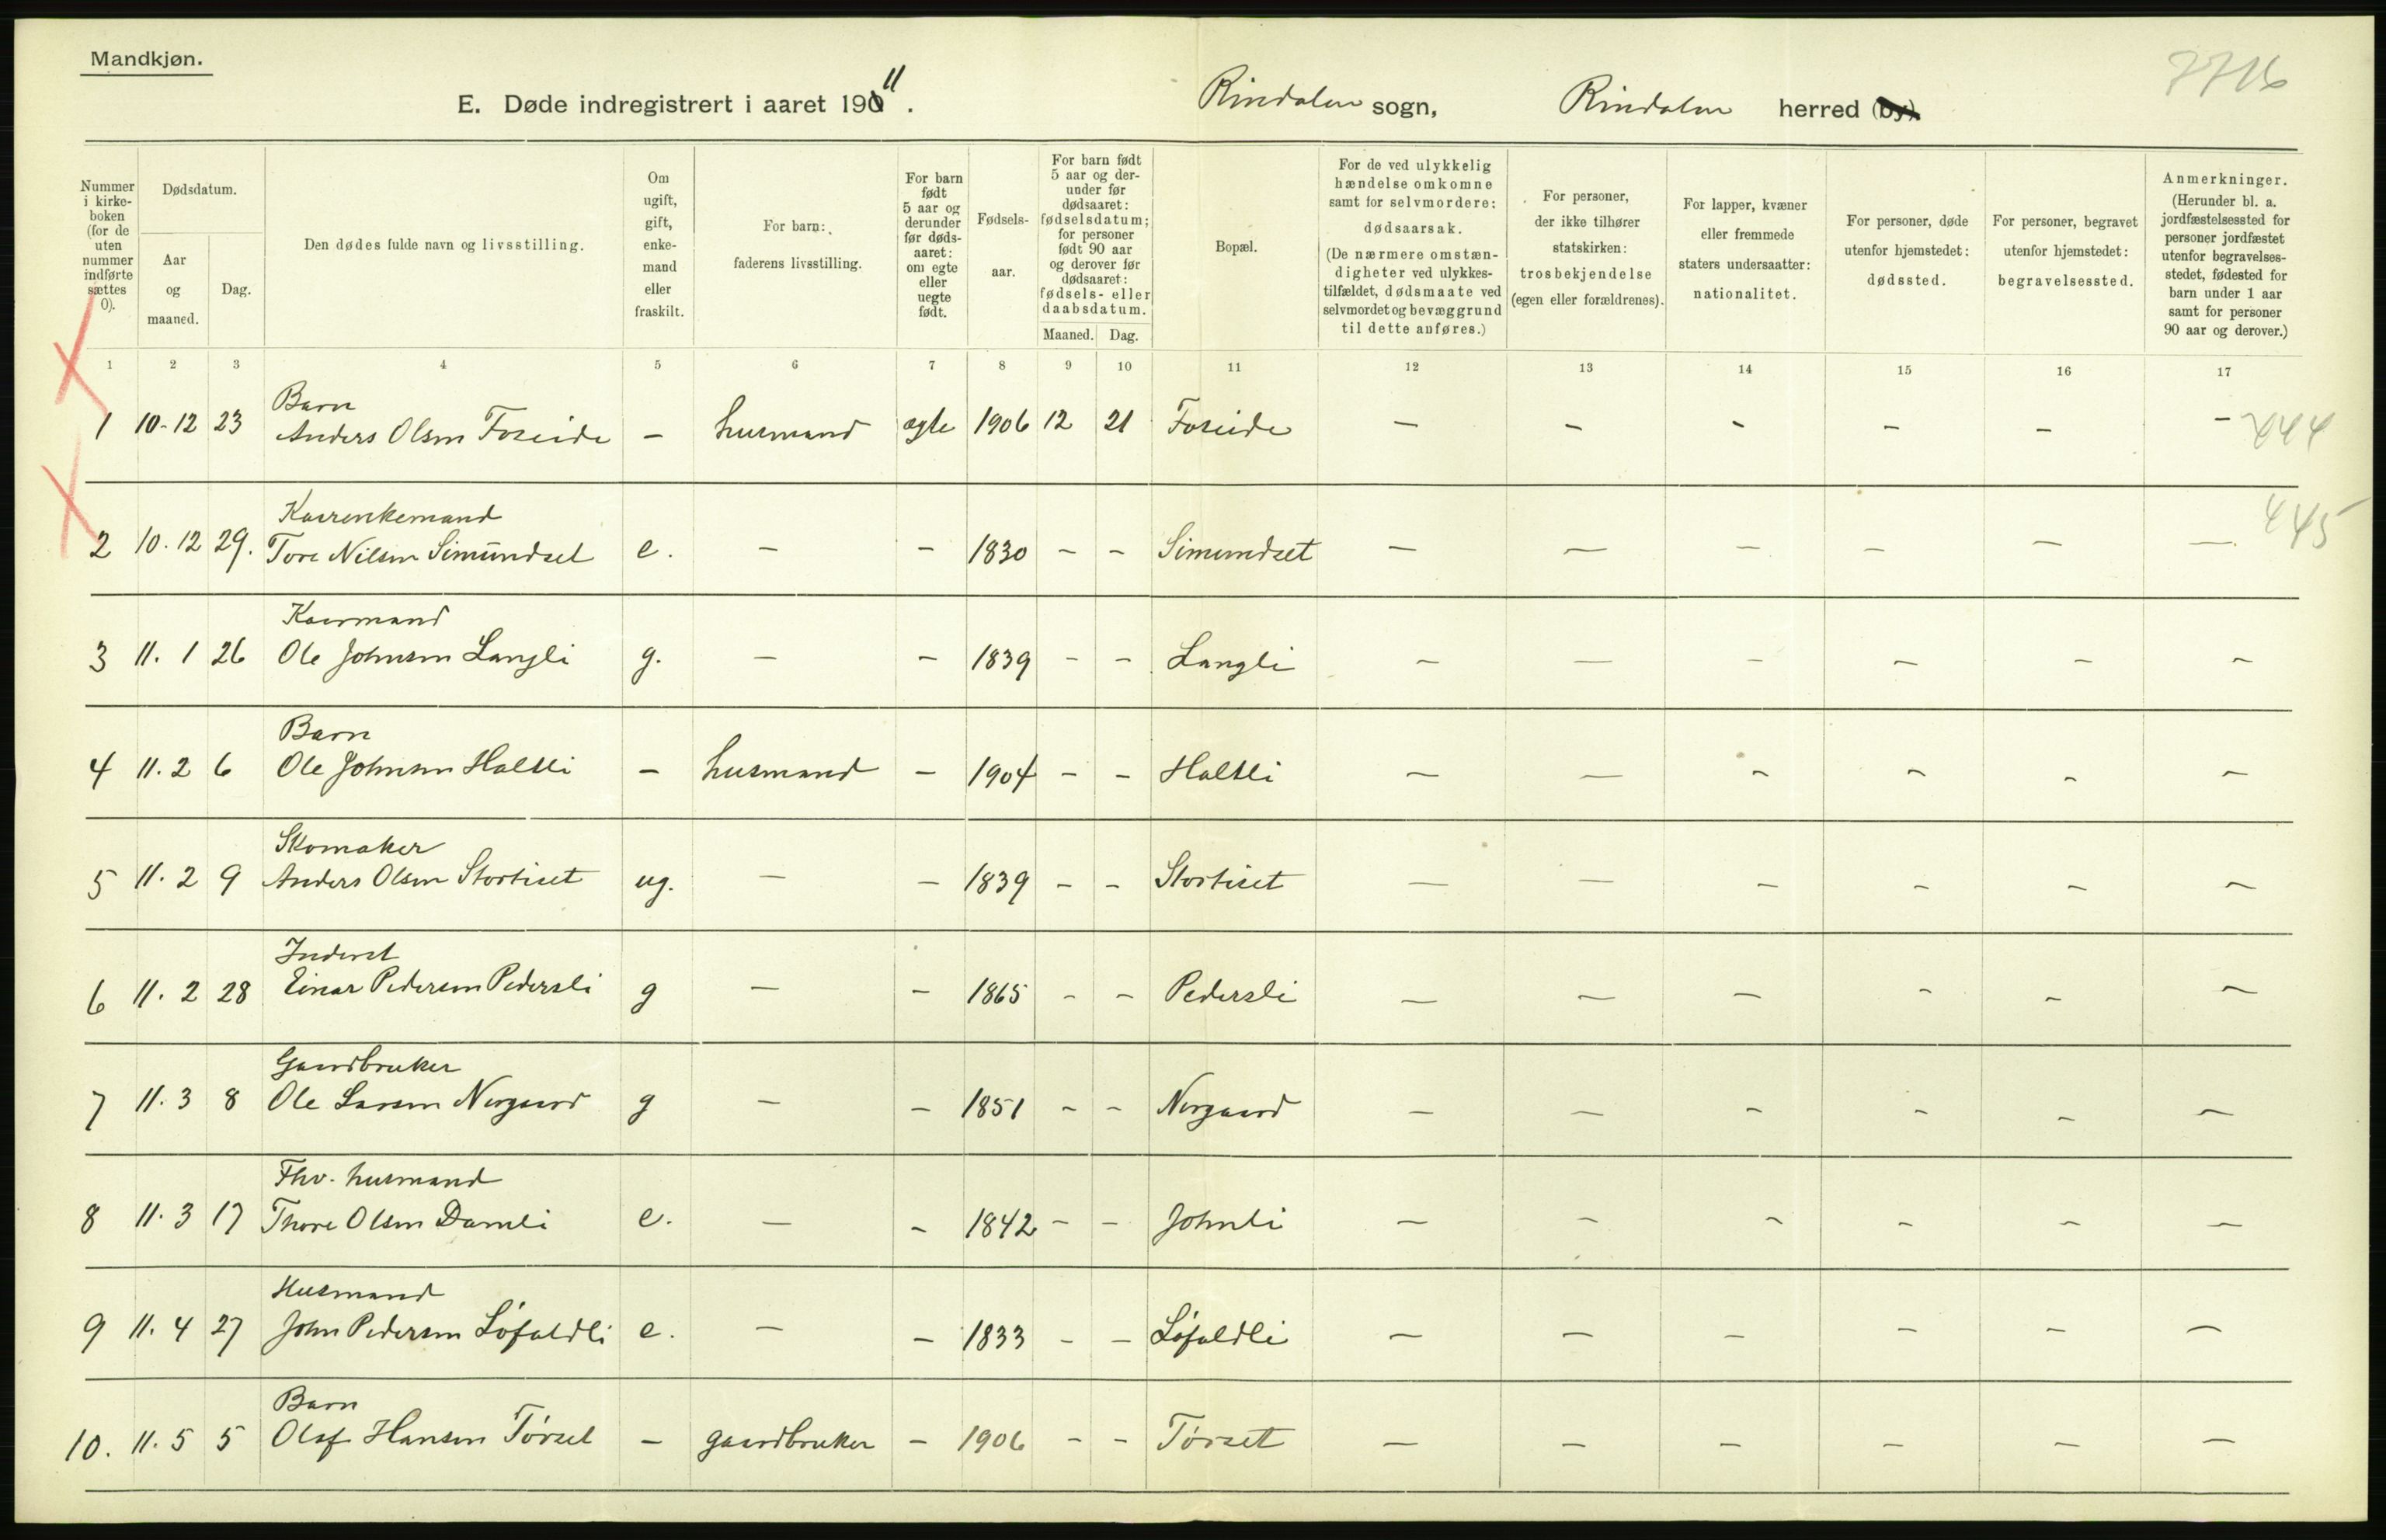 Mandkjøn.
7716
E. Døde indregistrert i aaret 1911. Rindalen sogn, Rindalen herred (by).
Nummer i kirke-boken (for de uten nummer indførte sættes 0).
Dødsdatum.
Aar og maaned.
Dag.
Den dødes fulde navn og livsstilling.
Om ugift, gift, enke-mand eller fraskilt.
For barn: faderens livsstilling.
For barn født 5 aar og derunder før døds-aaret: om egte eller uegte født.
Fødsels-aar.
For barn født 5 aar og der-under før dødsaaret: fødselsdatum; for personer født 90 aar og derover før dødsaaret: fødsels- eller daabsdatum.
Maaned. Dag.
Bopæl.
For de ved ulykkelig hændelse omkomne samt for selvmordere: dødsaarsak. (De nærmere omstæn-digheter ved ulykkes-tilfældet, dødsmaate ved selvmordet og bevæggrund til dette anføres.)
For personer, der ikke tilhører statskirken: trosbekjendelse (egen eller forældrenes).
For lapper, kvæner eller fremmede staters undersaatter: nationalitet.
For personer, døde utenfor hjemstedet: dødssted.
For personer, begravet utenfor hjemstedet: begravelsessted.
Anmerkninger. (Herunder bl. a. jordfæstelsessted for personer jordfæstet utenfor begravelses-stedet, fødested for barn under 1 aar samt for personer 90 aar og derover.)
1 2 3 4 5 6 7 8 9 10 11 12 13 14 15 16 17
Barn
1 10-12 23 Anders Olsen Foseide - husmand egte 1906 12 21 Foseide - - - - - - 444
Kaarenkemand
2 10.12 29. Tore Nilsen Simundset e. - - 1830 - - Simundset - - - - - - 445
Kaarmand
3 11. 1 26 Ole Johnsen Langli g. - - 1839 - - Langli - - - - - -
Barn
4 11. 2 6 Ole Johnsen Haltli - husmand - 1904 - - Haltli - - - - - -
Skomaker
5 11. 2 9 Anders Olsen Stortiset ug. - - 1839 - - Stortiset - - - - - -
Inderst
6 11. 2 28 Einar Pedersen Pedersli g - - 1865 - - Pedersli - - - - - -
Gaardbruker
7 11. 3 8 Ole Larsen Nergaard g - - 1851 - - Nergaard - - - - - -
Fhv. husmand
8 11. 3 17 Thore Olsen Damli e. - - 1842 - - Johnli - - - - - -
Husmand
9 11. 4 27 John Pedersen Løfaldli e. - - 1833 - - Løfaldli - - - - - -
Barn
10. 11. 5 5 Olaf Hansen Tørset - gaardbruker - 1906 - - Tørset - - - - - -